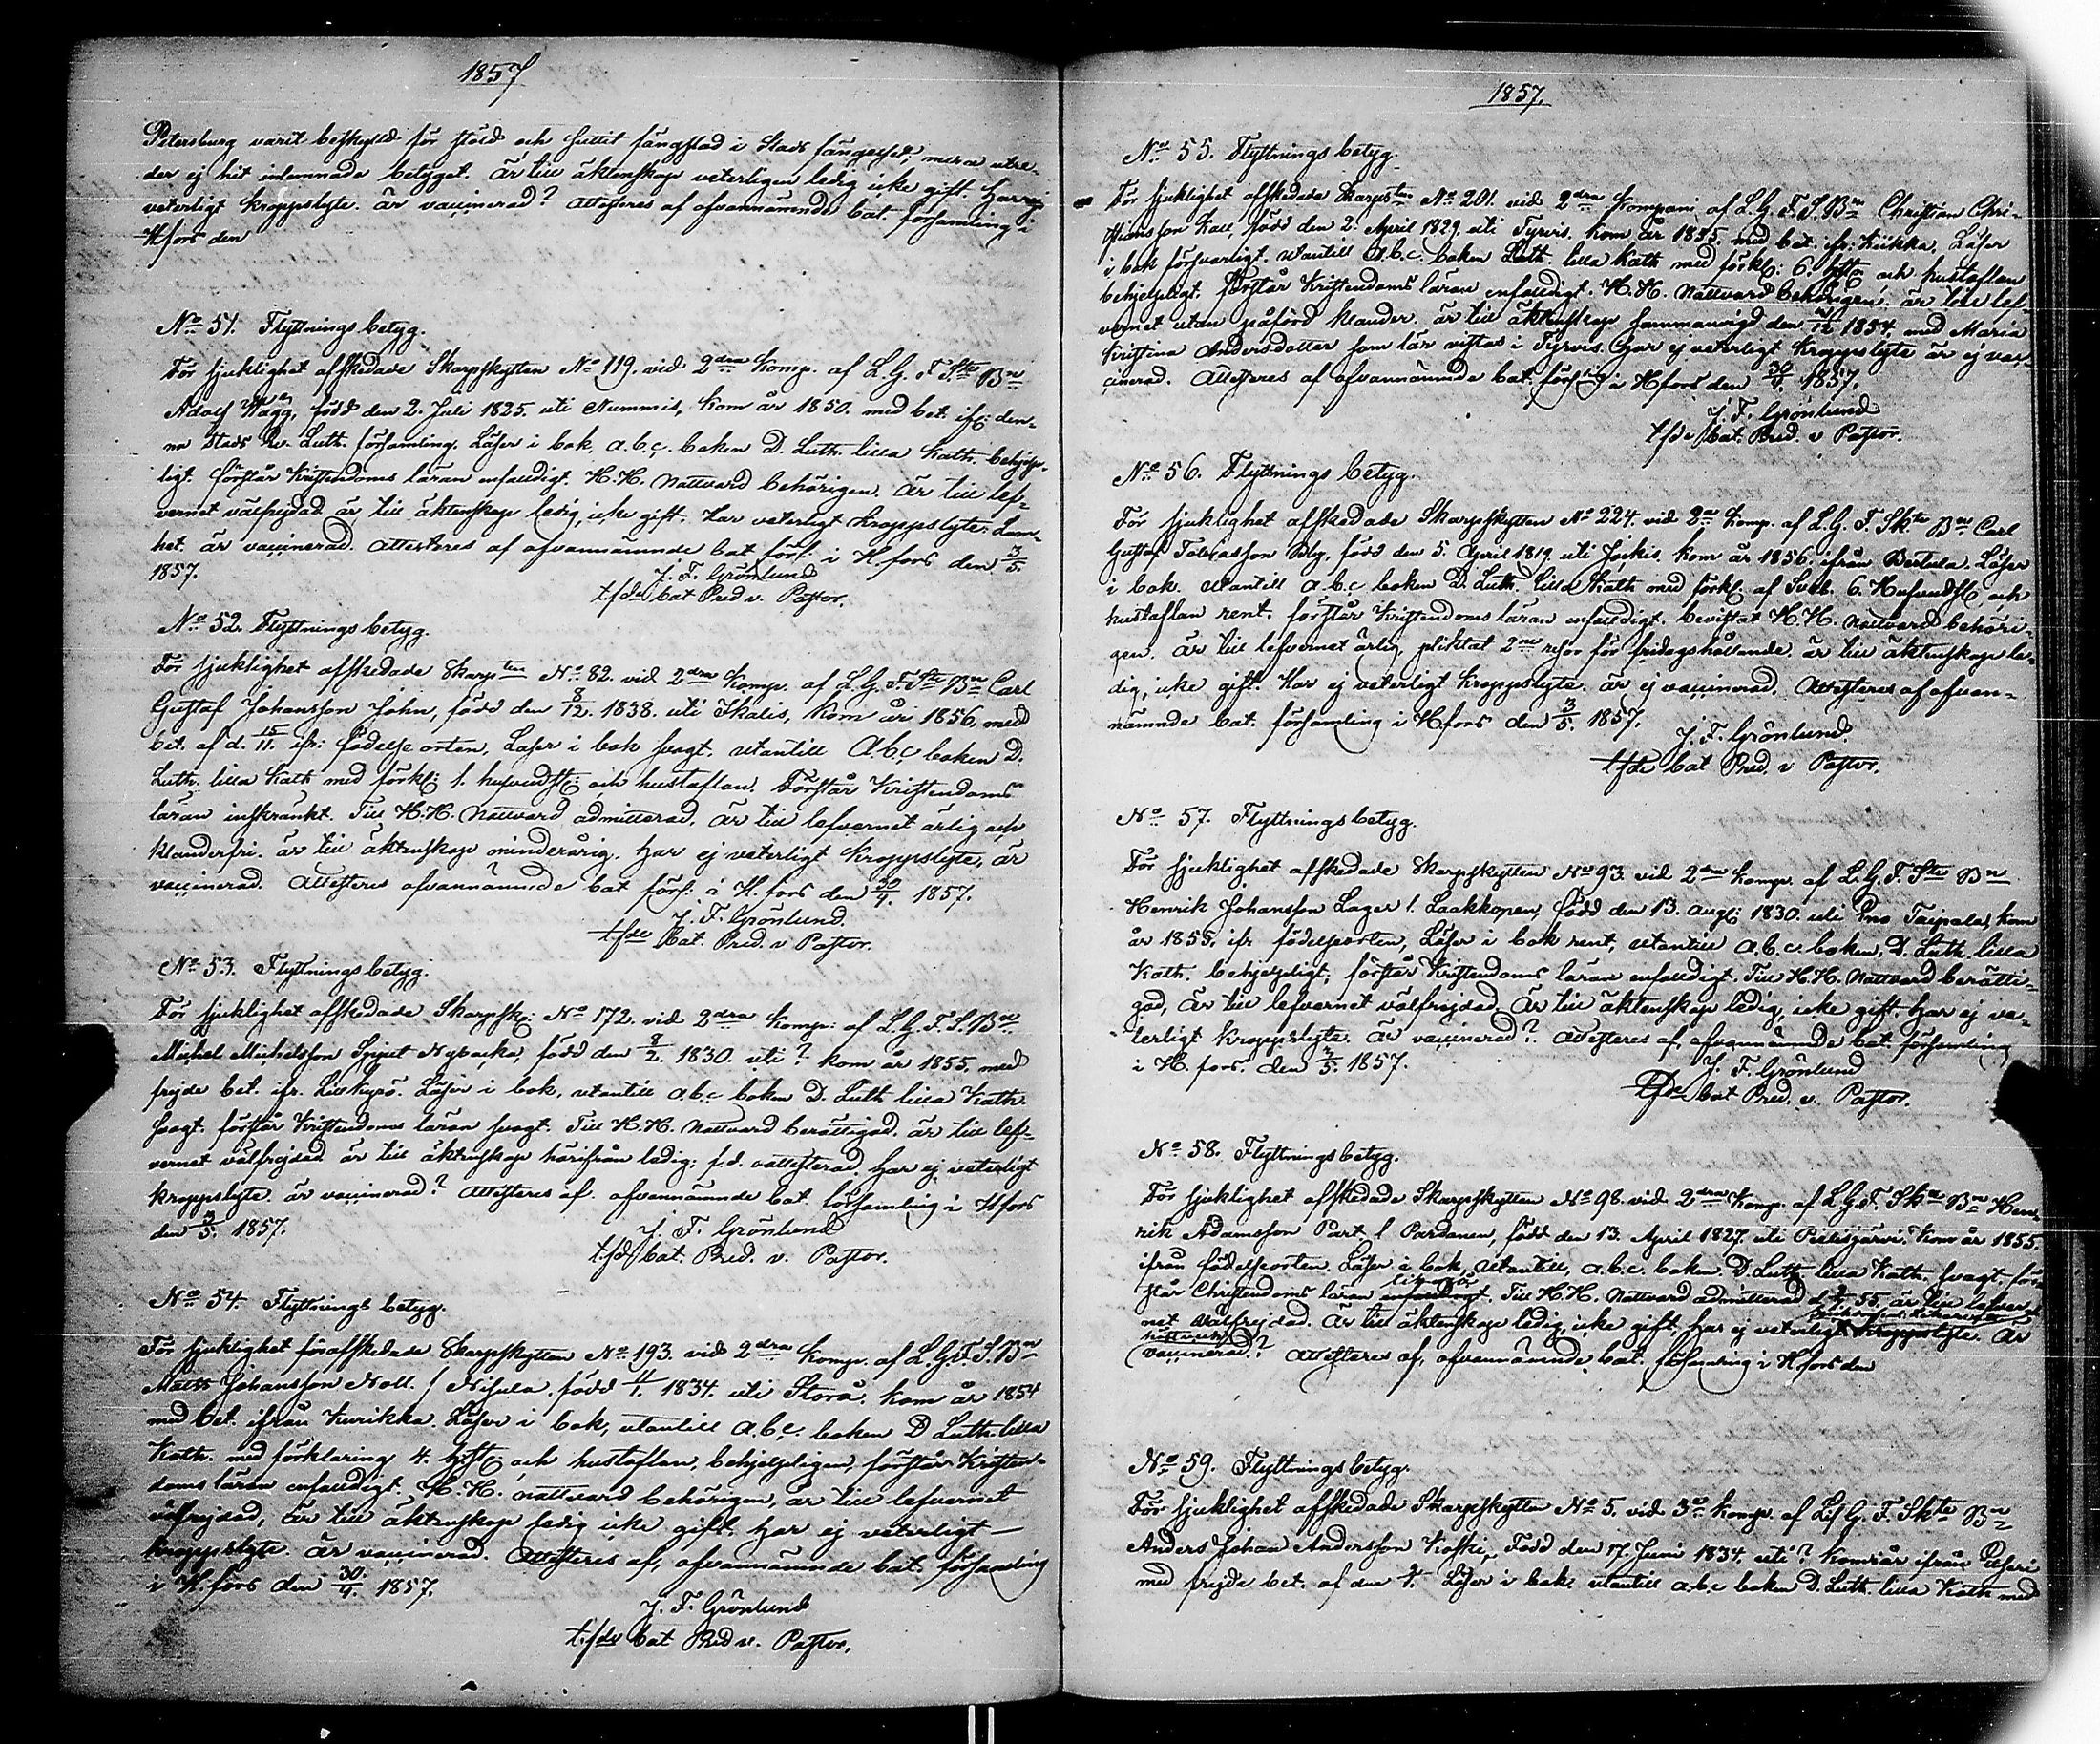 1857
Petersburg varit beskylld för stöld och suttit fängslad i Stads fängelset, mera utre-
der ej hit inlemnade betyget. är till äktenskap veterligen ledig icke gift. Har ej
veterligt kroppslyte. är vaccinerad? Attesteras af ofvannämnde bat. församling i
Hfors den
No 51. Flyttnings betyg.
För sjuklighet afskedade Skarpskytten No 119. vid 2dra Komp. af L. G. F. Ste Bn
Adolf Wagg, född den 2. Juli 1825. uti Nummis, kom år 1850. med bet. ifr: den-
na Stads Sv. Luth. församling. Läser i bok, a.b.c. boken D. Luth. lilla Kath. behjelp-
ligt. förstår Kristendoms läran enfaldigt. H. H. Nattvard behörigen. Är till lef-
vernet välfrejdad är till äktenskap ledig, icke gift. Har veterligt kroppslyte: Lam-
het. är vaccinerad. Attesteras af ofvannämnde bat förs: i H.fors den 3/5.
1857.
J. F. Grönlund
t.f.de bat Pred v. Pastor.
No 52. Flyttnings betyg.
För sjuklighet afskedade Skarpten No 82. vid 2dra Komp. af L. G. F. Ste Bn Carl
Gustaf Johansson John, född den 8/12. 1838. uti Ikalis, kom år 1856, med
bet. af d. 15/11. ifr: födelse orten, Läser i bok svagt. utantill A.b.c boken D.
Luth. lilla Kath med förkl: 1. hufvudst: och hustaflan. Förstår Kristendoms
läran inskränkt. Till H. H. Nattvard admitterad. Är till lefvernet ärlig och
klanderfri. är till äktenskap minderårig. har ej veterligt kroppslyte, är
vaccinerad. Attesteras ofvannämnde bat förs: i H. fors den 30/4. 1857.
J. F. Grönlund.
t.f.de bat. Pred. v Pastor.
No 53. Flyttnings betyg.
För sjuklighet afskedade Skarpsk: No 172. vid 2dra Komp: af L. G. F. S. Bn
Michel Michelsson Spjut Nybacka, född den 8/2. 1830. uti? kom år 1855, med
frejde bet. ifr. Lillkyro. Läser i bok, utantill a.b.c boken D. Luth lilla Kath.
svagt. förstår Kristendoms läran svagt. Till H. H. Nattvard berättigad. är till lef-
vernet välfrejdad är till äktenskap härifrån ledig: f.d. attesterad. har ej veterligt
kroppslyte är vaccinerad? Attesteras af ofvannämnde bat församling i Hfors
den 3/5. 1857.
J. F. Grönlund
t.f.de bat. Pred. v. Pastor.
No 54. Flyttnings betyg.
För sjuklighet förafskedade Skarpskytten No 193. vid 2dra Komp. af L. G. F. S. Bn
Matts Johansson Noll. / Nisula. född 4/1. 1834. uti Storå. kom år 1854
med bet. ifrån Kurikka. Läser i bok, utantill a.b.c. boken D Luth. lilla
Kath. med förklaring 4. hst: och hustaflan, behjelpligen, förstår Kristen-
doms läran enfaldigt, H. H. nattvard behörigen, är till lefvernet
välfrejdad, är till äktenskap ledig icke gift. har ej veterligt —
kroppslyte. är vaccinerad. Attesteras af, ofvannämnde bat. församling
i H. fors den 30/4. 1857.
J. F. Grönlund
t.f.de bat Pred v. Pastor.
1857.
No 55. Flyttnings betyg.
För sjuklighet afskedade Skarpsten No 201. vid 2dra Kompani af L. G. F. S. Bn Christian Chri-
stiansson Kall, född den 2. April 1829. uti Tyrvis. kom år 1855. med bet. ifr: Kiikka. Läser
i bok försvarligt. utantill A.b.c. boken Luth. lilla Kath med förkl: 6. hst: och hustaflan
behjelpligt. Förstår Kristendoms läran enfaldigt. H. H. Nattvard behörigen. är till lef-
vernet utan påförd klander. är till äktenskap sammanvigd den /12 1854. med Maria
Kristina Andersdotter som lär vistas i Tyrvis. har ej veterligt kroppslyte är ej vac-
cinerad. Attesteras af ofvannämnde bat. förs:g i Hfors den 30/4. 1857.
J. F. Grönlund
t.f.de bat. Pred. v Pastor.
No 56. Flyttnings betyg.
För sjuklighet afskedade Skarpskytten No 224. vid 2a Komp. af L. G. F. Skte Bn Carl
Gustaf Tobiasson Bly, född den 5. April 1819 uti Jockis. kom år 1856. ifrån Bertula. Läser
i bok. utantill a.b.c boken D. Luth. lilla Kath med förkl: af Sveb. 6. Hufvudst: och
hustaflan rent. förstår Kristendoms läran enfaldigt. bevistat H. H. nattvard behöri-
gen. är till lefvernet ärlig, pliktat 2ne resor för fridagshållande. är till äktenskap le-
dig, icke gift. Har ej veterligt kroppslyte. är ej vaccinerad. Attesteras af ofvan-
nämnde bat. församling i Hfors den 3/5. 1857.
J. F. Grönlund.
t.f.de bat Pred. v Pastor.
No 57. Flyttnings betyg.
För sjuklighet afskedade Skarpskytten No 93. vid 2dra Komp. af L. G. F. Ste Bn
Henrik Johansson Lager l. Laakkonen, född den 13. Aug: 1830. uti Eno Taipale, kom
år 1855. ifr födelseorten, Läser i bok rent, utantill a.b.c. boken, D. Luth. lilla
Kath. behjelpligt, förstår Kristendoms läran enfaldigt. Till H. H. Nattvard berätti-
gad, är till lefvernet välfrejdad. är till äktenskap ledig, icke gift. har ej ve-
terligt kroppslyte. är vaccinerad? Attesteras af, ofvannämnde bat. församling
i H. fors. den 3/5. 1857.
J. F. Grönlund
Tfde bat Pred. v. Pastor.
No 58. Flyttnings betyg.
För sjuklighet afskedade Skarpskytten No 98. vid 2dra Komp. af L. G. F. Skte Bn Hen-
rik Adamsson Part. l Pardanen, född den 13. April 1827. uti Pielisjärvi. kom år 1855.
ifrån födelseorten. Läser i bok, utantill, a.b.c. boken. D. Luth. lilla Kath. svagt. för-
står Christendoms läran enfaldigt. Till H. H. Nattvard admitterad 55. är till lefver-
net välfrejdad. är till äktenskap ledig, icke gift, har ej veterligt kroppslyte. är
vaccinerad? Attesteras af, ofvannämnde bat. församling i Hfors den
No 59. Flyttnings betyg.
För sjuklighet afskedade Skarpskytten No 5. vid 3e Komp. af Lif G. F. Skte Bn
Anders Johan Andersson Koski, född den 17. Juni 1834. uti? kom år ifrån
med frejde bet. af den Läser i bok. utantill a.b.c boken D. Luth. lilla Kath med